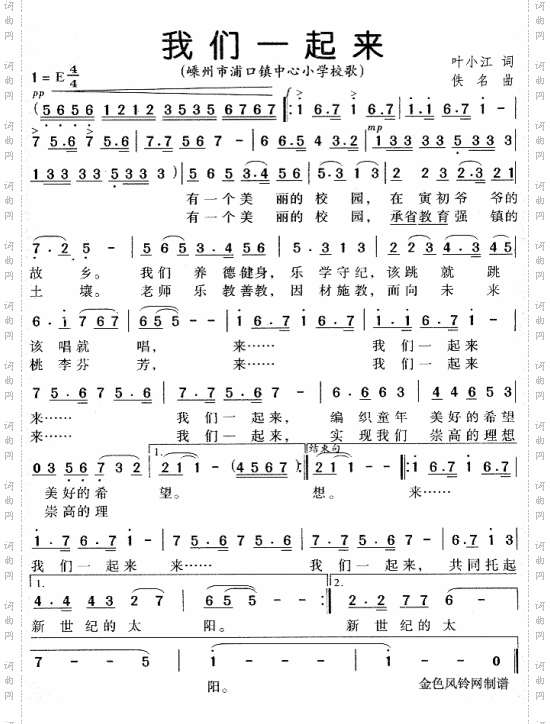 我们一起来
(嵊州市浦口镇中心小学校歌)
1=E 4/4
叶小江 词
佚名 曲
pp
(5656 1212 353535 676767 ‖: 1 6.7 1 6.7 | 1.1 6.7 1 - |
7 5.6 7 5.6 | 7 5.6 7 - | 6 6.5 4 3.2 | 133 333 533 33 |
mp
133 333 533 33 ) | 565 3.43 | 5.313 5 | 2.343.21
有一个美 丽的校 园，在寅初爷 爷的
有一个美 丽的校 园，承省教育强 镇的
7.25 - | 5653.456 | 5.6545 | 4.32.345
故 乡。我们 养 德健身，乐 学守纪，该跳 就 跳
土 壤。老师 乐 教善教，因 材施教，面向 未 来
6.1767 | 565 - | 1 6.7 1 6.7 | 1.1 6.7 1 -
该 唱就 唱， 来…… 我 们 一 起来
桃 李芬 芳， 来…… 我 们 一 起来
7 5.6 7 5.6 | 7.7 5.6 7 - | 6.663 | 44653
来…… 我 们 一 起来， 编 织童年 美好的希望
来…… 我 们 一 起来， 实 现我们 崇高的理想
1.
结束句
0356732 | 211 - (4567 :‖ 211 - - ‖: 1 6.7 1 6.7
美好的希 望。 想。 来……
崇高的理
1.1 6.7 1 - | 7 5.6 7 5.6 | 7.7 5.6 7 - | 6.713
我 们 一 起来 来…… 我 们 一 起来， 共同托起
1.
2.
4.44327 | 655 - - :‖ 2.22776 - -
新 世纪的太 阳。 新 世纪的太
7 - - 5 | 1 - - - | 1 - - - ‖
阳。
金色风铃网制谱
词曲网
词曲网
词曲网
词曲网
词曲网
词曲网
词曲网
词曲网
词曲网
词曲网
词曲网
词曲网